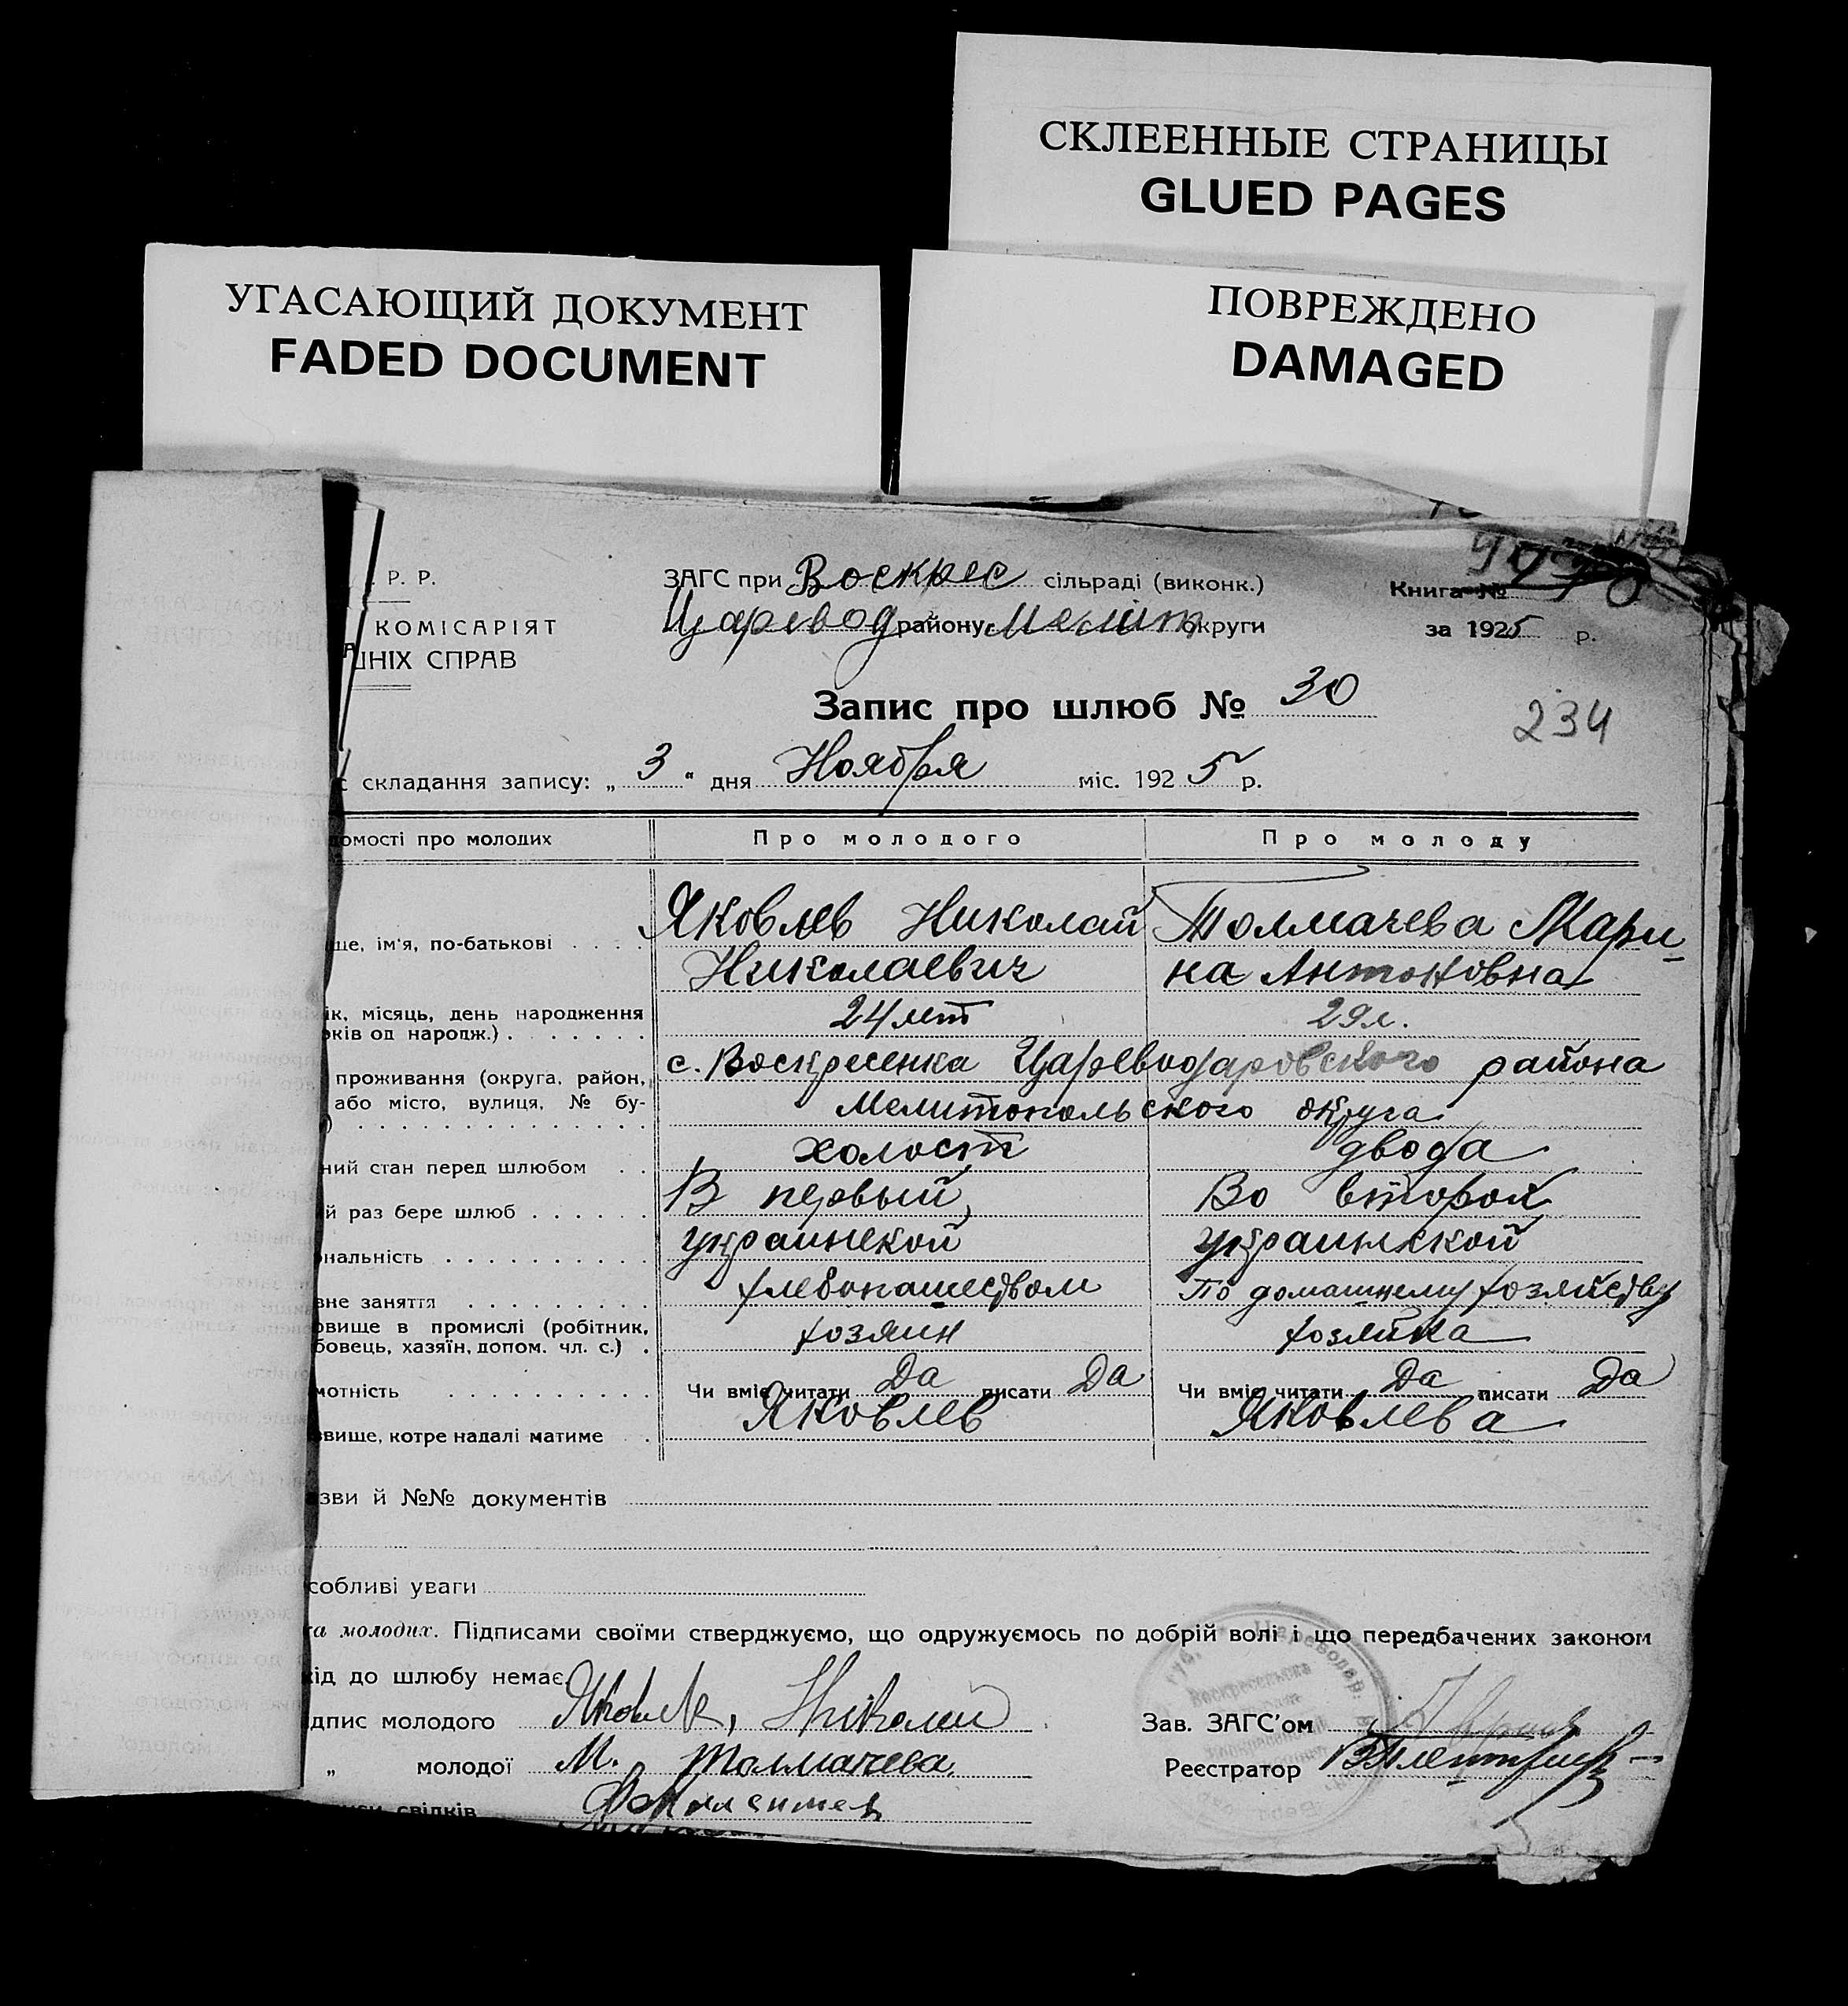 СКЛЕЕННЫЕ СТРАНИЦЫ
GLUED PAGES
УГАСАЮЩИЙ ДОКУМЕНТ
FADED DOCUMENT
ПОВРЕЖДЕНО
DAMAGED
. Р. Р.
КОМІСАРІЯТ
ШНІХ СПРАВ
ЗАГС при Воскрес сільраді (виконк.)
Царевод району Меліт округи
Книга №
за 1925 р.
Запис про шлюб № 30
234
с складання запису: „ 3 “ дня Ноября міс. 1925 р.
домості про молодих Про молодого Про молоду
ще, ім'я, по-батькові . . . . Яковлев Николай Толмачева Мари-
Николаевич на Антоновна
ік, місяць, день народження
оків од народж.) . . . . . . . 24 лет 29 л.
проживання (округа, район, с. Воскресенка Цареводаровского района
або місто, вулиця, № бу-
) . . . . . . . . . . . . . . Мелитопольского округа
ний стан перед шлюбом . . холост двова
й раз бере шлюб . . . . . . В первый Во второй
ональність . . . . . . . . . . украинской украинской
вне заняття . . . . . . . . . хлебопашеством По домашнему хозяйству
овище в промислі (робітник,
бовець, хазяїн, допом. чл. с.) . хозяин хозяйка
мотність . . . . . . . . . . Чи вміє читати Да писати Да Чи вміє читати Да писати Да
звище, котре надалі матиме . Яковлев Яковлева
зви й №№ документів
собливі уваги
ка молодих. Підписами своїми стверджуємо, що одружуємось по добрій волі і що передбачених законом
кід до шлюбу немає.
ідпис молодого Яковлев, Николай
Зав. ЗАГС’ом
„ молодої М. Толмачева.
Реєстратор
иси свідків